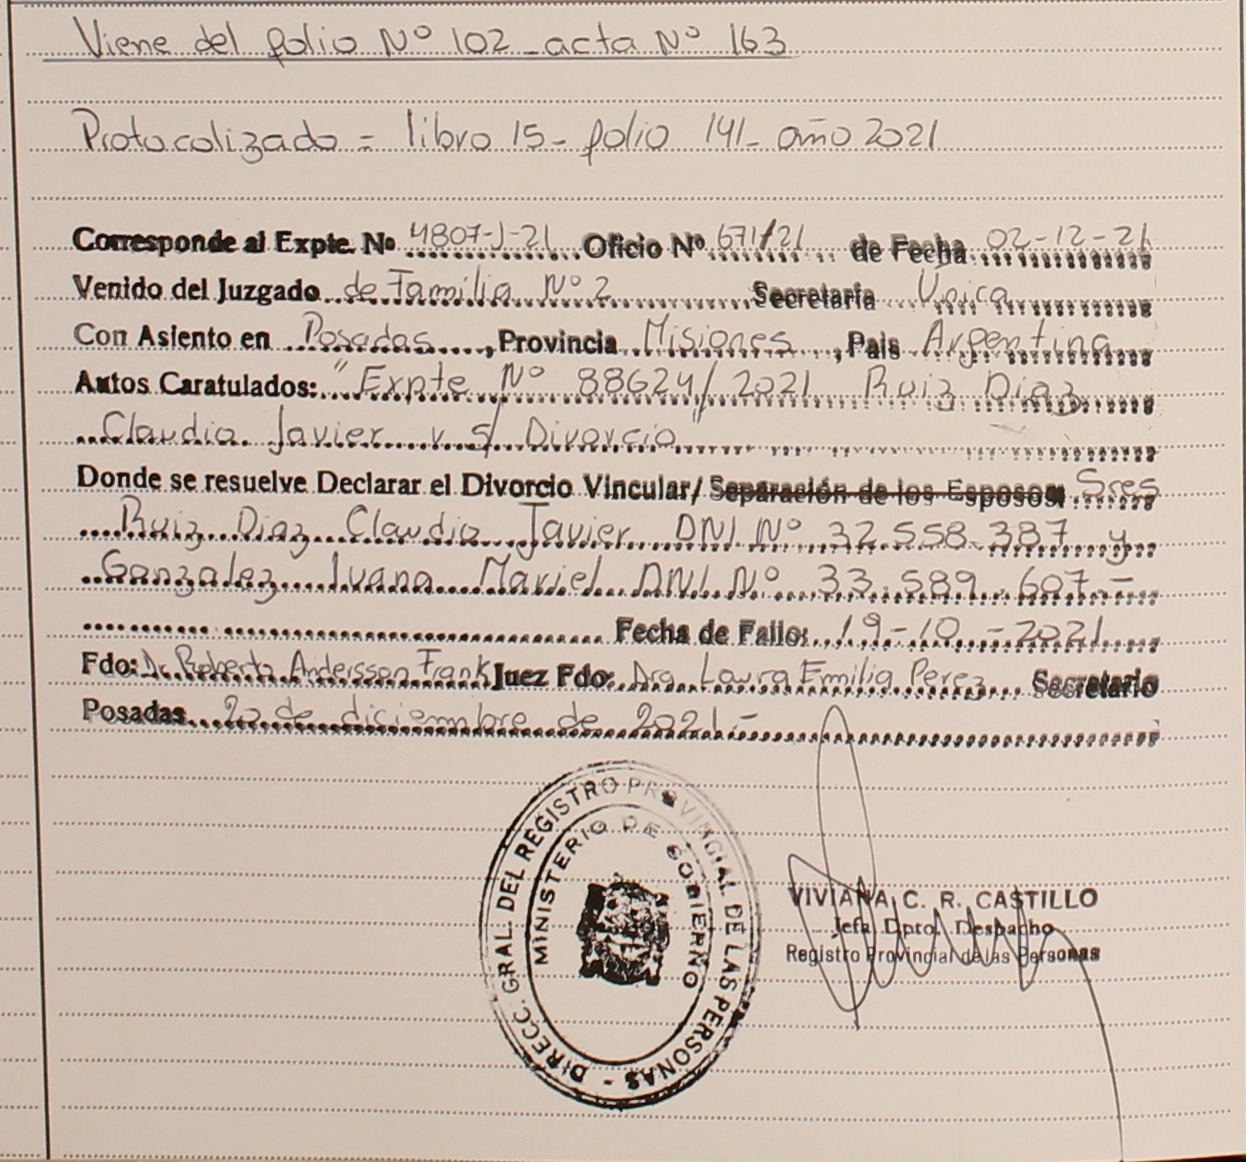 Viene del folio Nº 102 - acta Nº 163
Protocolizado = libro 15 - folio 141 - año 2021
Corresponde al Expte. Nº 4807-J-21 Oficio Nº 671/21 de Fecha 02-12-21
Venido del Juzgado de Familia Nº 2 Secretaría Única
Con Asiento en Posadas, Provincia Misiones, Pais Argentina
Autos Caratulados: "Expte Nº 88624/2021 Ruiz Diaz
Claudio Javier s/ Divorcio
Donde se resuelve Declarar el Divorcio Vincular/ Separación de los Esposos: Sres
Ruiz Diaz Claudio Javier DNI Nº 32.558.387 y
Gonzalez Ivana Mariel DNI. Nº 33.589.607.-
Fecha de Fallo: 19-10-2021
Fdo: Dr. Roberto Andersson Frank Juez Fdo: Dra Laura Emilia Perez Secretario
Posadas 20 de diciembre de 2021.-
DIRECC. GRAL. DEL REGISTRO PROVINCIAL DE LAS PERSONAS -
MINISTERIO DE GOBIERNO
VIVIANA C. R. CASTILLO
Jefa Dpto. Despacho
Registro Provincial de las Personas